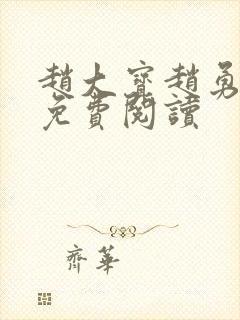 趙大寶趙勇
免費閱讀
齊華